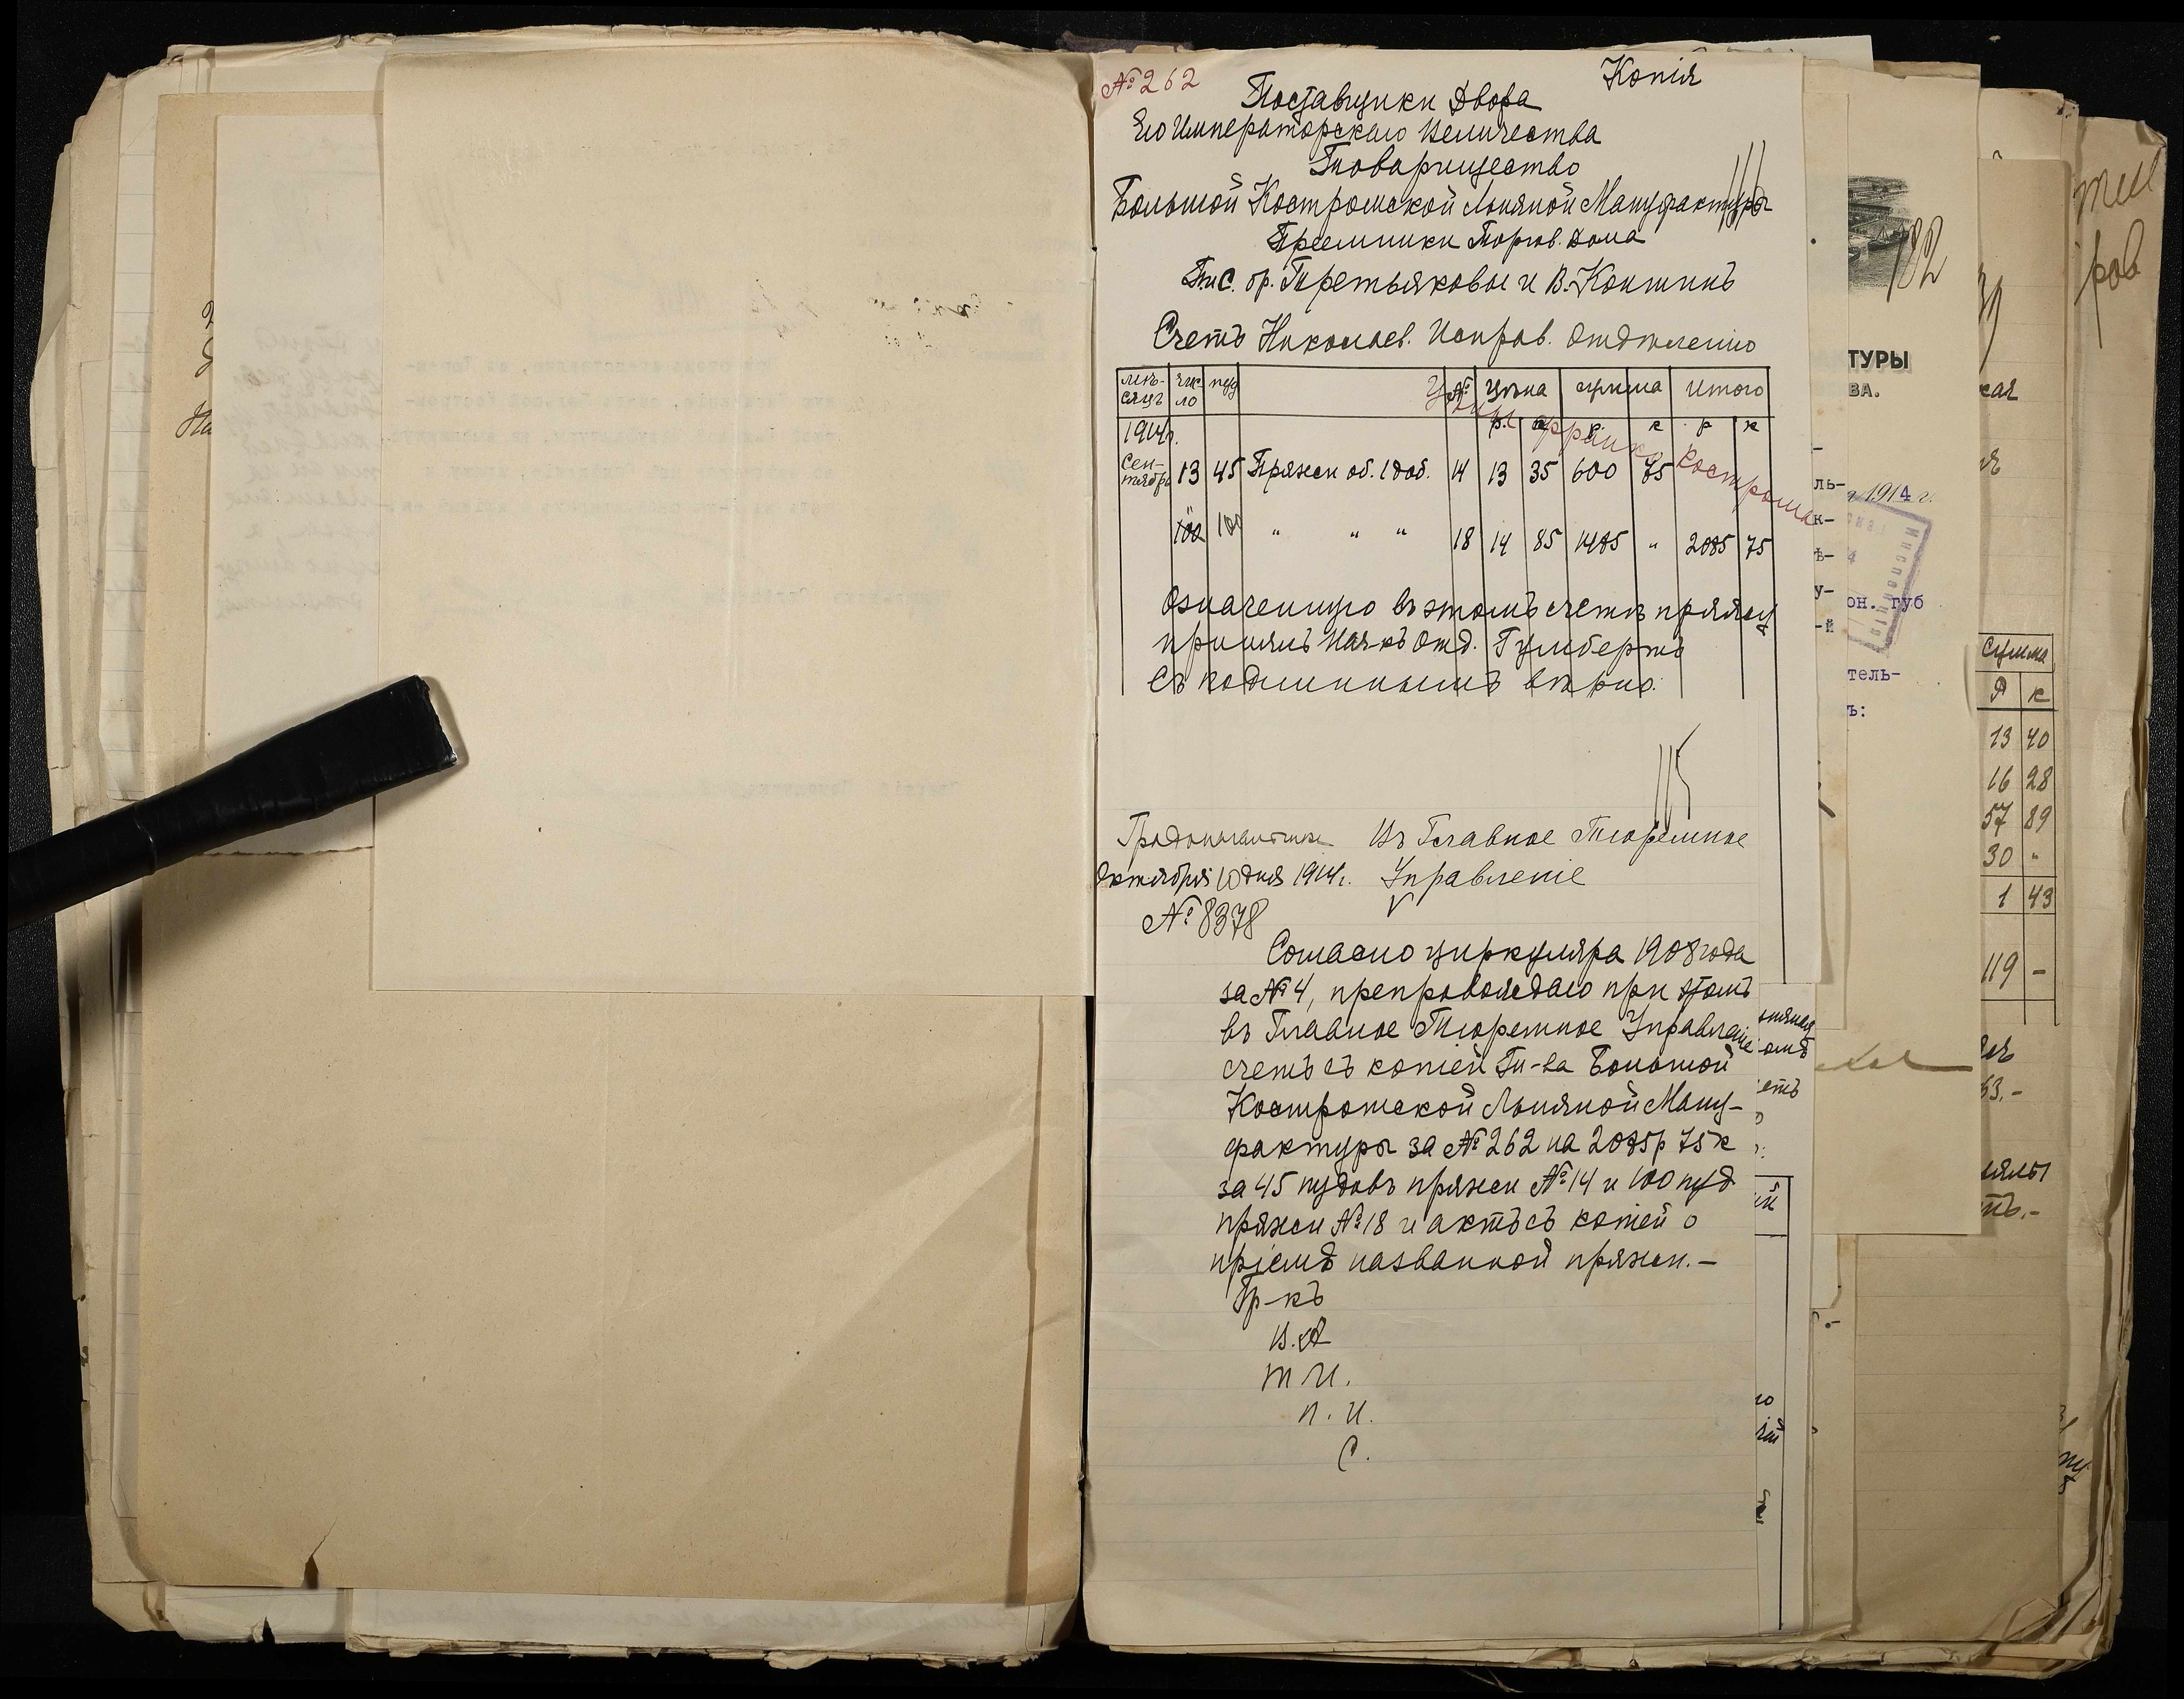 № 262
Копія
Поставщики Двора
Его Императорскаго Величества
Товарищество
Большой Костромской Льняной Мануфактуры
Преемники Торгов. Дома
бр. Третьяковы и В. Коншинъ
Счетъ Николаев. Исправ. Отдѣленію
мѣсяцъ число пуд № Цѣна сумма итого
франко Кострома
1914г. р. к р к
Сентябрь 13 45 Пряжи об. 14 13 35 600 75
100 " " " 18 14 85 1485 " 2085 75
Означенную въ этомъ счетѣ пряжу
принялъ Нач-къ Отд. Гумбертъ
Съ подлиннымъ вѣрно.
115
Градоначальникъ Въ Главное Тюремное
Октября 10 дня 1914г. Управленіе
№ 8378
Согласно циркуляра 1908 года
за № 4, препровождаю при этомъ
въ Главное Тюремное Управленіе
счетъ съ копіей Т-ва Большой
Костромской Льняной Ману-
фактуры за № 262 на 2085р 75к
за 45 пудовъ пряжи № 14 и 100 пуд
пряжи № 18 и актъ съ копіей о
пріемѣ названной пряжи.—
Гр-къ
т И.
п. И.
С.
182
ТУРЫ
ВА.
1914 г.
он. губ
тель-
ъ:
Сумма
Р к
13 40
16 28
57 89
30 "
1 43
119 —
63.-
ров